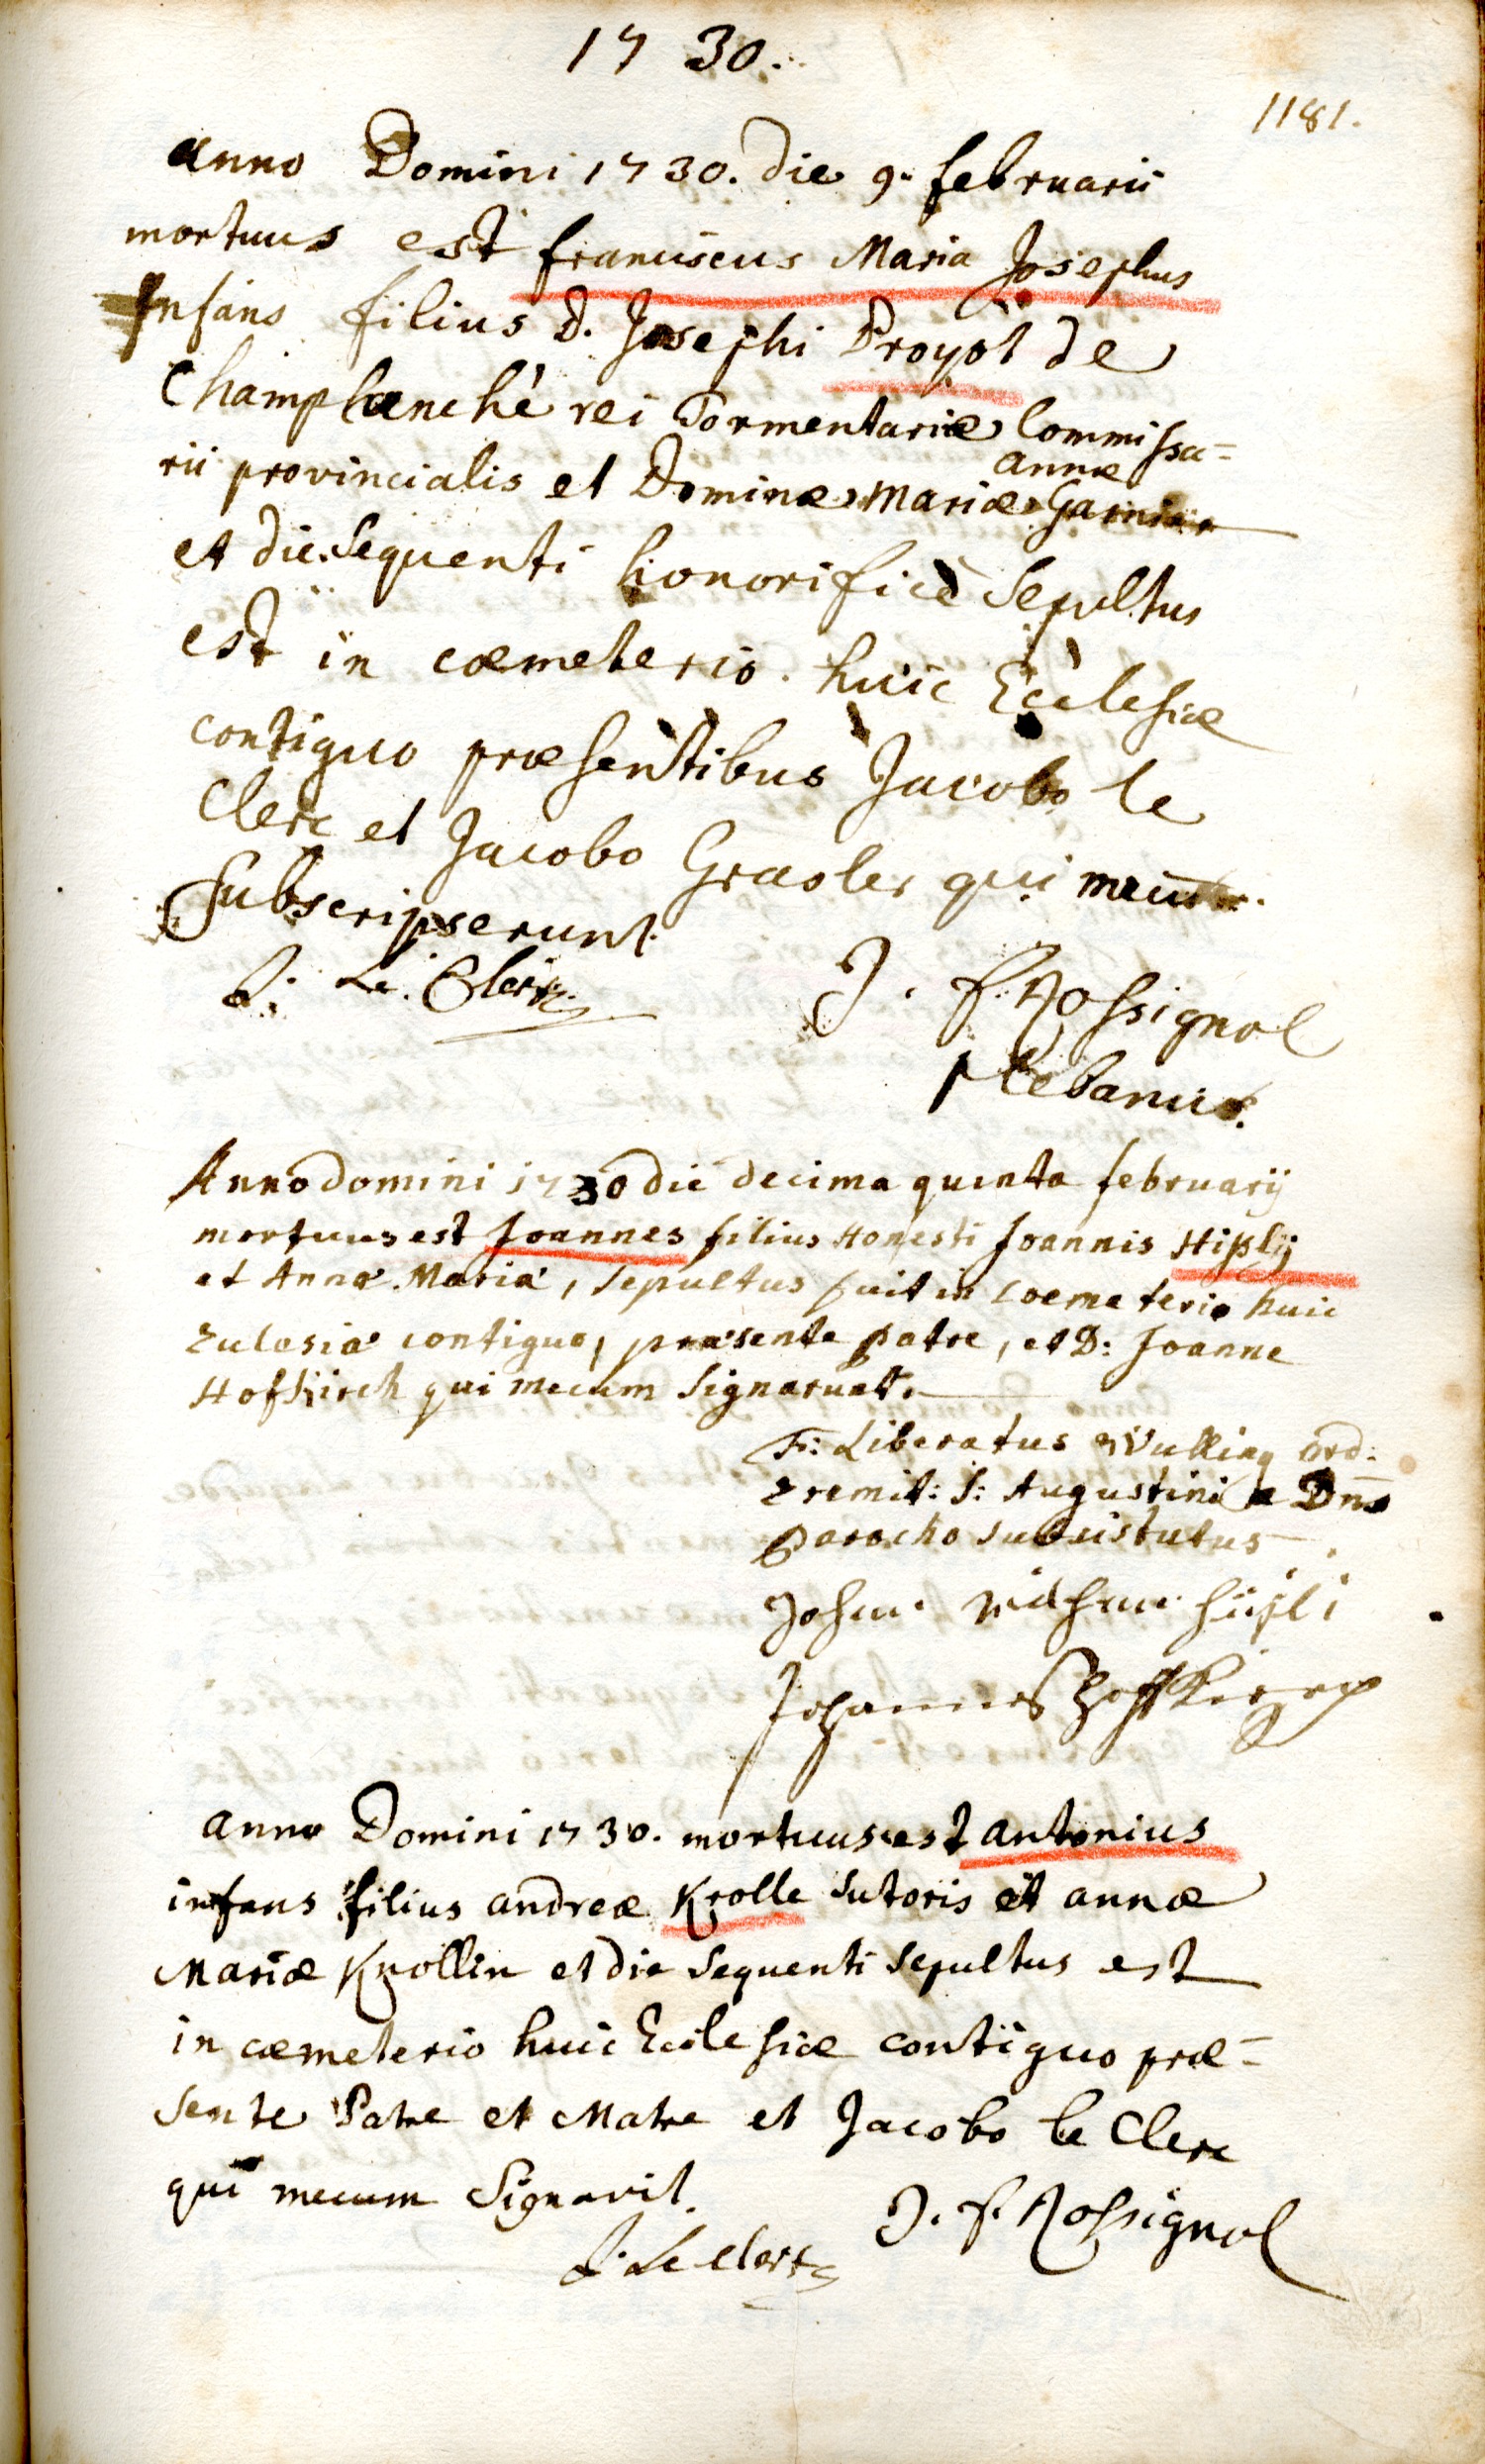 1730.
1181.
anno Domini 1730. die 9. februarii
mortuus est franciscus Maria Josephus
Infans filius d. Josephi Proyot de
Champlanché rei Tormentariæ Commissa-
annæ
rii provincialis et Dominæ Mariæ Garnier
et die sequenti honorificè sepultus
est in cœmeterio huic Ecclesiæ
contiguo præsentibus Jacobo le
Clerc et Jacobo Grasler qui mecum
subscripserunt.
J. Le. Clerc
J. f. Rossignol
plebanus.
Anno domini 1730 die decima quinta februarij
mortuus est Joannes filius Honesti Joannis Hiplij
et Annæ Mariæ, sepultus fuit in Coemeterio huic
Eclesiæ contiguo, præsente patre, et D: Joanne
Hofkirch qui mecum signarunt.
F: Liberatus Wulling ord:
Eremit: S: Augustini a Dno
Parocho substitutus
Johannes Hoffkirch
anno Domini 1730. mortuus est antonius
infans filius andreæ Krolle sutoris et annæ
Mariæ Krollin et die sequenti sepultus est
in cœmeterio huic Ecclesiæ contiguo præ-
sente Patre et Matre et Jacobo le Clerc
qui mecum signavit.
J. f. Rossignol
J. Le clerc